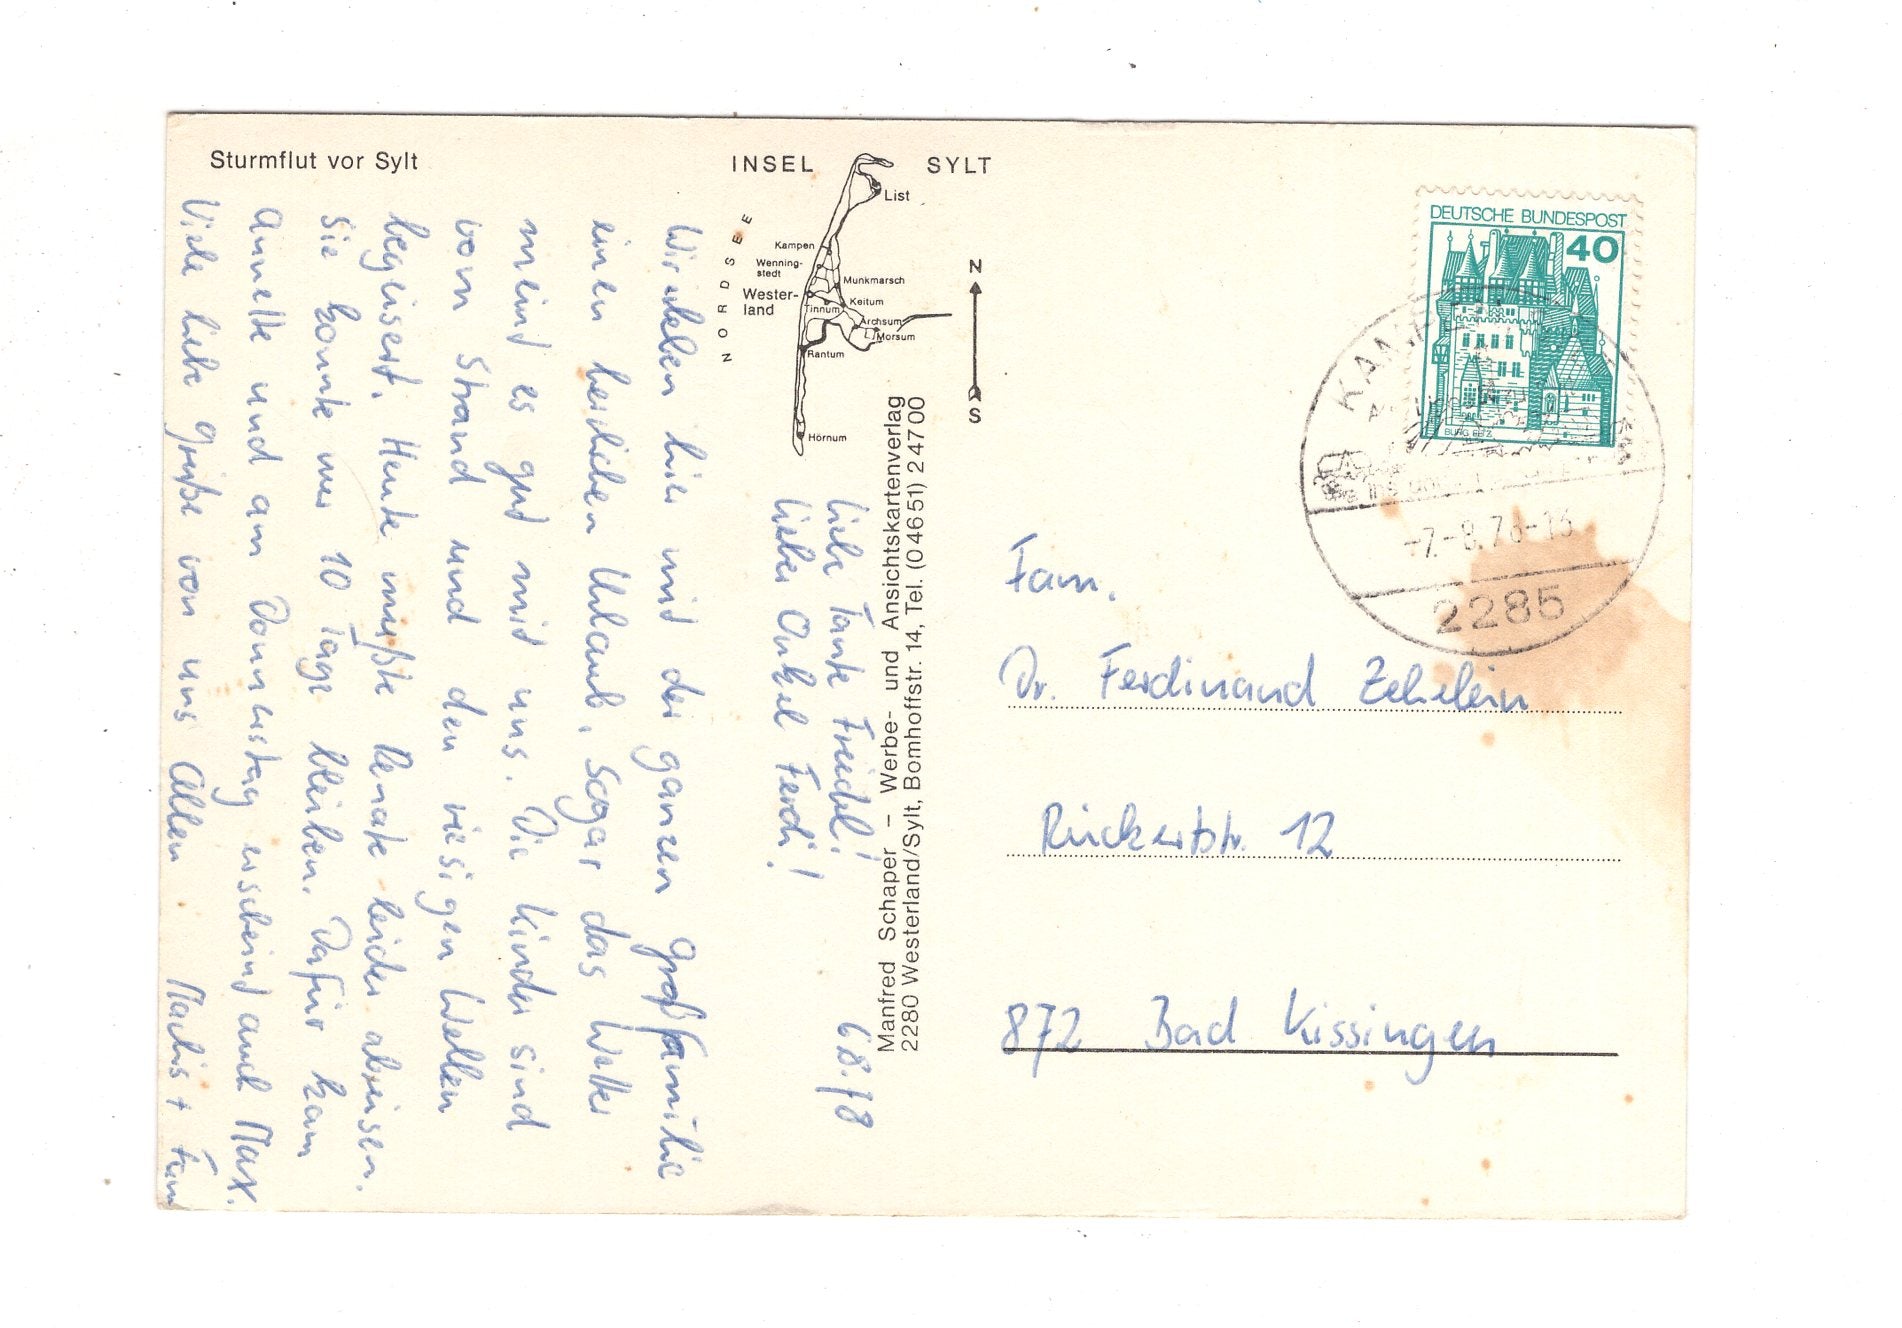 Sturmflut vor Sylt
INSEL SYLT
NORDSEE
List
Kampen
Wenning-
stedt
Munkmarsch
Wester-
land
Keitum
Tinnum
Archsum
Morsum
Rantum
Hörnum
N
S
Manfred Schaper – Werbe- und Ansichtskartenverlag
2280 Westerland/Sylt, Bomhoffstr. 14, Tel. (04651) 24700
6.8.78
Liebe Tante Friedel!
Lieber Onkel Ferdi!
Wir erleben hier mit der ganzen Großfamilie
einen herrlichen Urlaub. Sogar das Wetter
meint es gut mit uns. Die Kinder sind
vom Strand und den riesigen Wellen
begeistert. Heute mußte Renate leider abreisen.
Sie konnte nur 10 Tage bleiben. Dafür kam
Annette und am Donnerstag erscheint auch Max.
Viele liebe Grüße von uns Allen
+ Fam
DEUTSCHE BUNDESPOST
40
BURG ELTZ
KAMPEN
-7.-8.78-13
2285
Fam.
Dr. Ferdinand Zehelein
Rückertstr. 12
872 Bad Kissingen